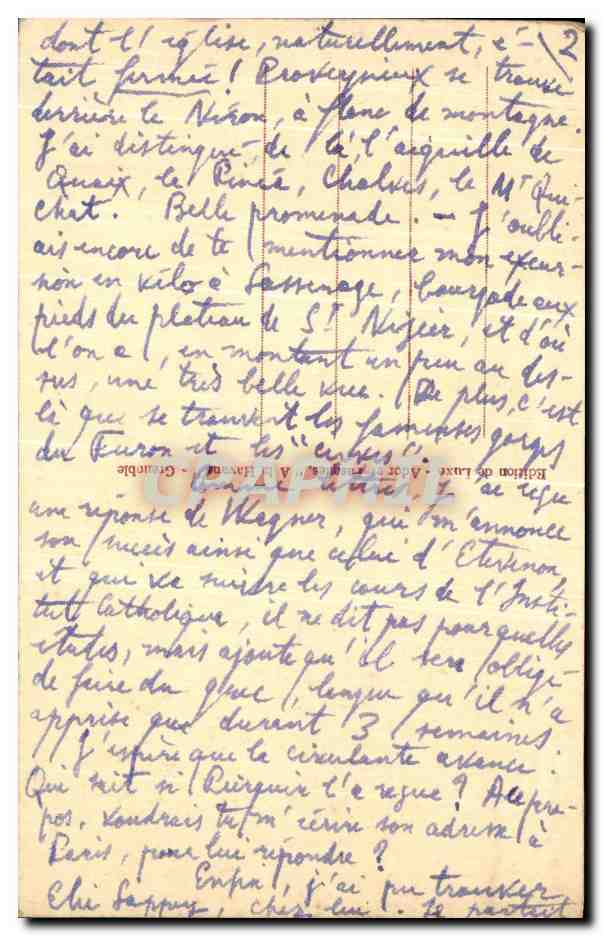 dont l'église, naturellement, é- 2
tait fermée ! Proveysieux se trouve
derrière le Néron, à flanc de montagne.
J'ai distingué de là, l'aiguille de
Quaix, le Pinéa, Chalves, le Mt Qui-
chat. Belle promenade. - J'oubli-
ais encore de te mentionner mon excur-
sion en vélo à Sassenage, bourgade aux
pieds du plateau de St Nizier, et d'où
l'on a, en montant un peu au des-
sus, une très belle vue. De plus, c'est
là que se trouvent les fameuses gorges
du Furon et les "cuves".
Edition de Luxe - Ador "A la Havane" - Grenoble
J'ai reçu
une réponse de Wagner, qui m'annonce
son succès ainsi que celui d'Etevenon,
et qui va suivre les cours de l'Insti-
tut Catholique, il ne dit pas pour quelles
études, mais ajoute qu'il sera obligé
de faire du grec, langue qu'il n'a
apprise que durant 3 semaines.
J'espère que la circulante avance.
Qui sait si l'a reçue ? A ce pro-
pos, voudrais tu m'écrire son adresse à
Paris, pour lui répondre ?
Enfin, j'ai pu trouver
Elie Sappey, chez lui. Je partait